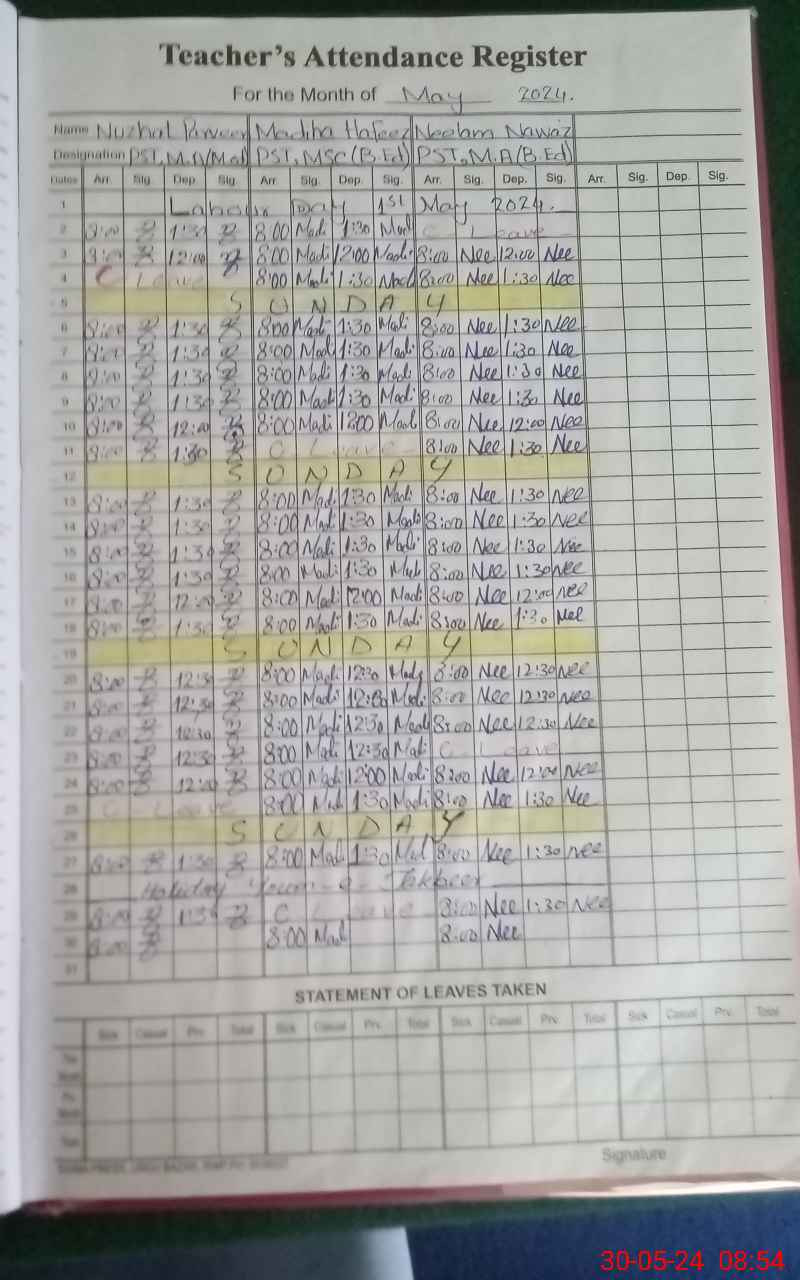 Teacher's Attendance Register
For the Month of May 2024.
Name Nuzhat Parveen Madiha Hafeez Neelam Nawaz
Designation PST, M.A (M.ed) PST, MSC (B.Ed) PST, M.A (B.Ed)
Dates Arr. Sig. Dep. Sig. Arr. Sig. Dep. Sig. Arr. Sig. Dep. Sig. Arr. Sig. Dep. Sig.
1 Labour Day 1st May 2024.
2 8:00 1:30 8:00 Madi 1:30 Madi C Leave
3 8:00 12:00 8:00 Madi 12:00 Madi 8:00 Nee 12:00 Nee
4 C Leave 8:00 Madi 1:30 Madi 8:00 Nee 1:30 Nee
5 S U N D A Y
6 8:00 1:30 8:00 Madi 1:30 Madi 8:00 Nee 1:30 Nee
7 8:00 1:30 8:00 Madi 1:30 Madi 8:00 Nee 1:30 Nee
8 8:00 1:30 8:00 Madi 1:30 Madi 8:00 Nee 1:30 Nee
9 8:00 1:30 8:00 Madi 1:30 Madi 8:00 Nee 1:30 Nee
10 8:00 12:00 8:00 Madi 12:00 Madi 8:00 Nee 12:00 Nee
11 8:00 1:30 C Leave 8:00 Nee 1:30 Nee
12 S U N D A Y
13 8:00 1:30 8:00 Madi 1:30 Madi 8:00 Nee 1:30 Nee
14 8:00 1:30 8:00 Madi 1:30 Madi 8:00 Nee 1:30 Nee
15 8:00 1:30 8:00 Madi 1:30 Madi 8:00 Nee 1:30 Nee
16 8:00 1:30 8:00 Madi 1:30 Madi 8:00 Nee 1:30 Nee
17 8:00 12:00 8:00 Madi 12:00 Madi 8:00 Nee 12:00 Nee
18 8:00 1:30 8:00 Madi 1:30 Madi 8:00 Nee 1:30 Nee
19 S U N D A Y
20 8:00 12:30 8:00 Madi 12:30 Madi 8:00 Nee 12:30 Nee
21 8:00 12:30 8:00 Madi 12:30 Madi 8:00 Nee 12:30 Nee
22 8:00 12:30 8:00 Madi 12:30 Madi 8:00 Nee 12:30 Nee
23 8:00 12:30 8:00 Madi 12:30 Madi C. Leave
24 8:00 12:00 8:00 Madi 12:00 Madi 8:00 Nee 12:00 Nee
25 C Leave 8:00 Madi 1:30 Madi 8:00 Nee 1:30 Nee
26 S U N D A Y
27 8:00 1:30 8:00 Madi 1:30 Madi 8:00 Nee 1:30 Nee
28 Holiday Youm-e-Takbeer
29 8:00 1:30 C Leave 8:00 Nee 1:30 Nee
30 8:00 8:00 Madi 8:00 Nee
31
STATEMENT OF LEAVES TAKEN
Sick Casual Prv. Total Sick Casual Prv. Total Sick Casual Prv. Total Sick Casual Prv. Total
Signature
30-05-24 08:54